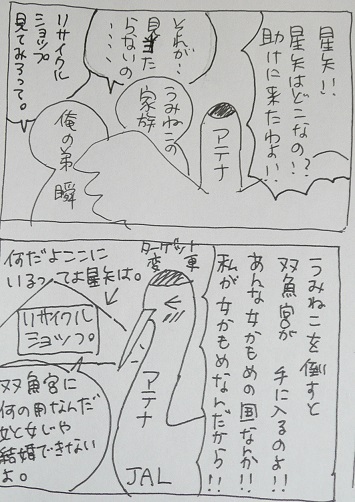 星矢!!
星矢はどこなの!!?
助けに来たわよ!!
アテナ
それが…
見当た
らないの
‥‥
うみねこの
家族
リサイクル
ショップ
見てみろって。
俺の弟
瞬
うみねこを倒すと
双魚宮が
手に入るのよ!!
あんな女かもめの国なんか!!
私が女かもめなんだから!!
ターゲット
変更
アテナ
JAL
何だよここに
いるってよ星矢は。
リサイクル
ショップ。
双魚宮に
何の用なんだ
女と女じゃ
結婚できない
よ。